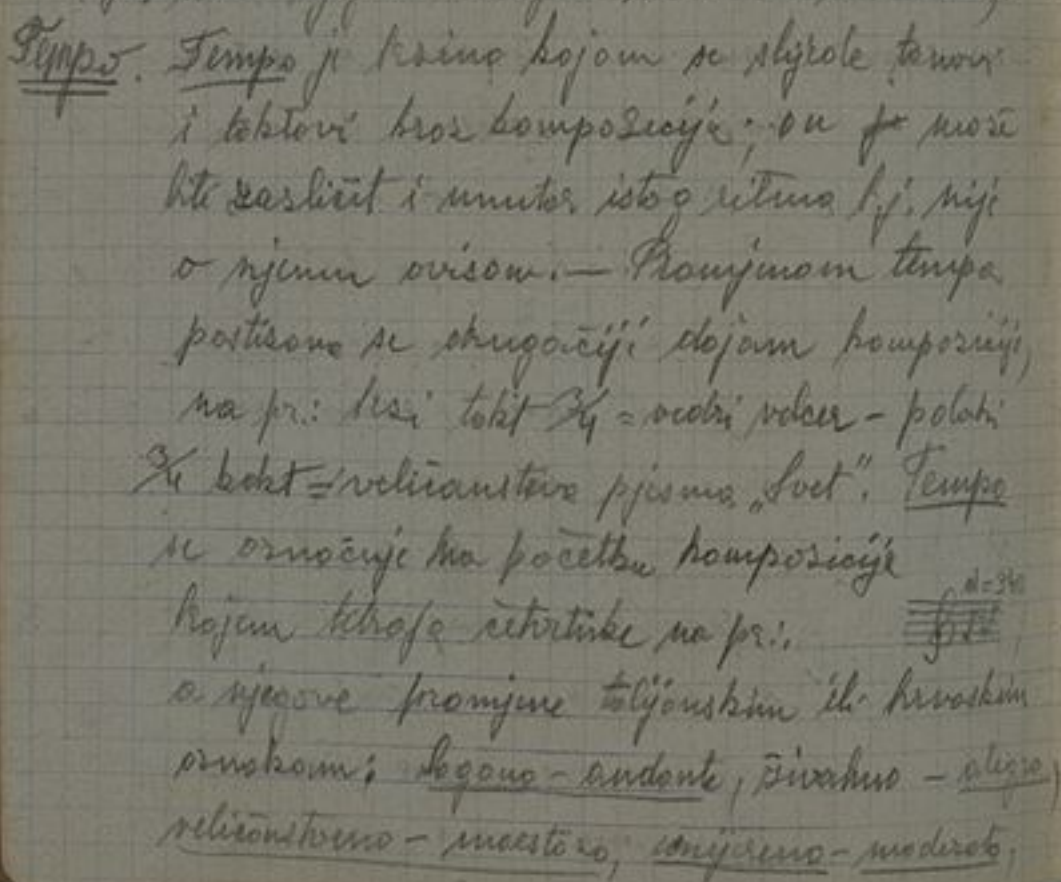 Tempo. Tempo je brzina kojom se slijede tonovi
i taktovi kroz kompoziciju; on može
biti različit i unutar istog ritma t.j. nije
o njemu ovisan. — Promjenom tempa
postizava se drugačiji dojam kompozicije,
na pr.: brzi takt 3/4 = vedri valcer - polaki
3/4 takt = veličanstvena pjesma „Svet". Tempo
se označuje na početku kompozicije
trajanja četvrtinke na pr.:
a njegove promjene talijanskim ili hrvaskim
oznakam: lagano - andante, živahno - alegro,
veličanstveno - maestozo, umjereno - moderato,